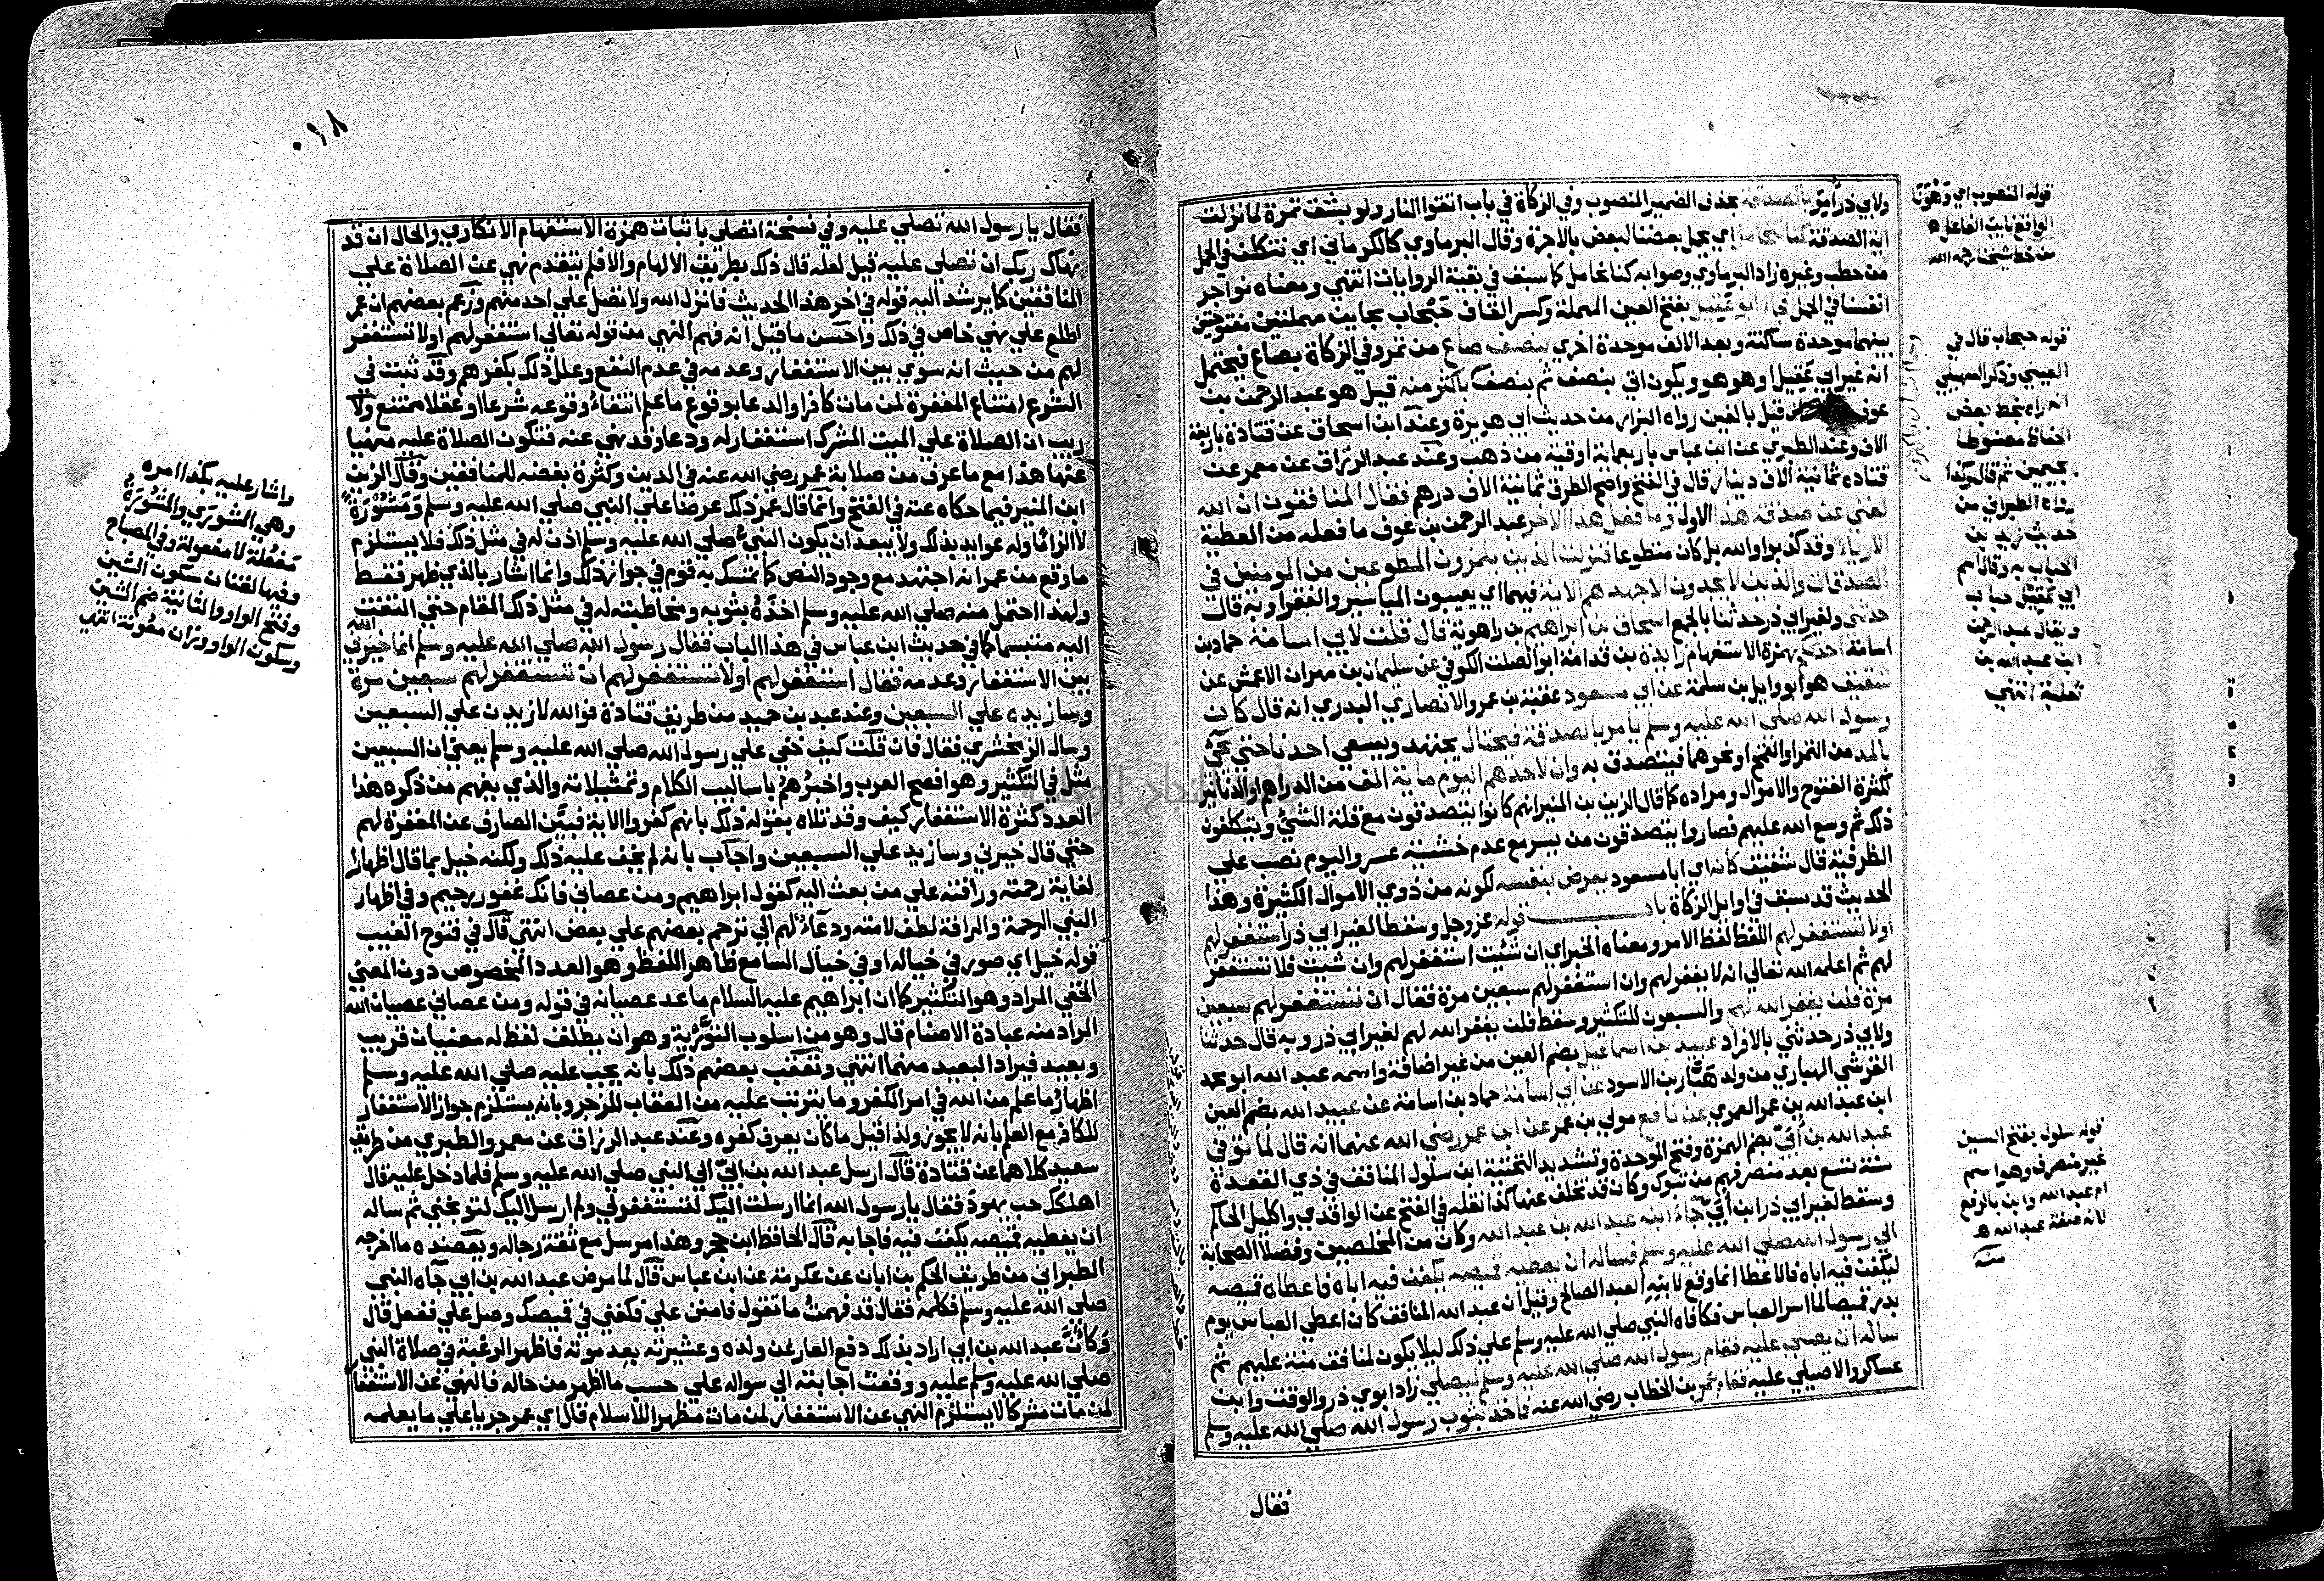 ولابي ذر أمر بالصدقة بحذف الضمير المنصوب وفي الزكاة في باب اتقوا النار ولو بشق تمرة لما نزلت
اية الصدقة كنا نتحامل اي يحمل بعضنا لبعض بالاجرة وقال البرماوي كالكرماني اي نتكلف في الحمل
من حطب وغيره زاد البرماوي وصوابه كنا نحامل كما سبق في بقية الروايات انتهي ومعناه نواجر
انفسنا في الحمل فجاء ابو عقيل بفتح العين المهملة وكسر القاف حبحاب بحايين مهملتين مفتوحتين
بينهما موحدة ساكنة وبعد الالف موحدة اخري بنصف صاع من تمر وفي الزكاة بصاع فيحتمل
انه غير ابي عقيل او هو هو ويكون اتي بنصف ثم بنصف باكثر منه قيل هو عبد الرحمن بن
عوف قيل بالفين رواه البزار من حديث ابي هريرة وعند ابن اسحاق عن قتادة باربعة
الاف وعند الطبري عن ابن عباس باربعماية اوقية من ذهب وعند عبد الرزاق عن معمر عن
قتادة ثمانية الاف دينار قال في الفتح واصح الطرق ثمانية الاف درهم فقال المنافقون ان الله
لغني عن صدقة هذا الاول وما فعل هذا الاخر عبد الرحمن بن عوف ما فعله من العطية
الا رياء وقد كذبوا والله بل كان متطوعا فنزلت الذين يلمزون المطوعين من المومنين في
الصدقات والذين لا يجدون الا جهدهم الاية فيهما اي يعيبون المياسير والفقرا وبه قال
حدثني ولغير ابي ذر حدثنا بالجمع اسحاق بن ابراهيم بن راهوية قال قلت لابي اسامة حماد بن
اسامة احدثكم بهمزة الاستفهام زايدة بن قدامة ابو الصلت الكوفي عن سليمان بن مهران الاعمش عن
شقيق هو ابو وايل بن سلمة عن ابي مسعود عقبة بن عمرو الانصاري البدري انه قال كان
رسول الله صلي الله عليه وسلم يامر بالصدقة فيحتال يجتهد ويسعي احدنا حتي يجيء
بالمد من التمر او القمح او نحوهما فيتصدق به وان لاحدهم اليوم ماية الف من الدراهم او الدنانير
لكثرة الفتوح والاموال ومراده كما قال الزين بن المنير انهم كانوا يتصدقون مع قلة الشيء ويتكلفون
ذلك ثم وسع الله عليهم فصاروا يتصدقون من يسر مع عدم خشية عسر واليوم نصب علي
الظرفية قال شقيق كانه اي ابا مسعود يعرض بنفسه لكونه من ذوي الاموال الكثيرة وهذا
الحديث قد سبق في اوايل الزكاة باب قوله عز وجل وسقط لغير ابي ذر استغفر لهم
اولا تستغفر لهم اللفظ لفظ الامر ومعناه الخبر اي ان شئت استغفر لهم وان شيت فلا تستغفر
لهم ثم اعلمه الله تعالي انه لا يغفر لهم وان استغفر لهم سبعين مرة فقال ان تستغفر لهم سبعين
مرة فلن يغفر الله لهم والسبعون للتكثير وسقط فلن يغفر الله لهم لغير ابي ذر وبه قال حدثنا
ولابي ذر حدثني بالافراد عبيد بن اسماعيل بضم العين من غير اضافة واسمه عبد الله ابو محمد
القرشي الهباري من ولد هبار بن الاسود عن ابي اسامة حماد بن اسامة عن عبيد الله بضم العين
ابن عبد الله بن عمر العمري عن نافع مولي بن عمر عن ابن عمر رضي الله عنهما انه قال لما توفي
عبد الله بن أبي بضم الهمزة وفتح الموحدة وتشديد التحتية ابن سلول المنافق في ذي القعدة
سنة تسع بعد منصرفهم من تبوك وكان قد تخلف عنها كذا نقله في الفتح عن الواقدي واكليل الحاكم
وسقط لغير ابي ذر ابن أبي جاء ابنه عبد الله بن عبد الله وكان من المخلصين وفضلا الصحابة
الي رسول الله صلي الله عليه وسلم فساله ان يعطيه قميصه يكفن فيه اباه فاعطاه قميصه
ليكفن فيه اباه فالاعطا انما وقع لابنه العبد الصالح وقيل أن عبد الله المنافق كان اعطي العباس يوم
بدر قميصا لما اسر العباس فكافاه النبي صلي الله عليه وسلم علي ذلك ليلا يكون لمنافق منة عليهم ثم
ساله ان يصلي عليه فقام رسول الله صلي الله عليه وسلم ليصلي زاد ابوي ذر والوقت وابن
عساكر والاصيلي عليه فقام عمر بن الخطاب رضي الله عنه فاخذ بثوب رسول الله صلي الله عليه وسلم
فقال
قوله المنصوب اي وهو نا
الواقع نايب الفاعل ه
من خط شيخنا رحمه الله
قوله حبحاب قال في
العيني وذكر السهيلي
انه راه بخط بعض
الحفاظ مضبوطا
بجيمين ثم قال وكذا
رواه الطبراني من
حديث زيد بن
الحباب به وقال اسم
ابي عقيل حباب
ويقال عبد الرحمن
ابن عبد الله بن
ثعلبة انتهي
قوله سلول بفتح السين
غير منصرف وهو اسم
ام عبد الله وابن بالرفع
لانه صفة عبد الله ه
منه
٠١٨
فقال يا رسول الله تصلي عليه وفي نسخة اتصلي باثبات همزة الاستفهام الانكاري والحال ان قد
نهاك ربك ان تصلي عليه قيل لعله قال ذلك بطريق الالهام والا فلم يتقدم نهي عن الصلاة علي
المنافقين كما يرشد اليه قوله في اخر هذا الحديث فانزل الله ولا تصل علي احد منهم وزعم بعضهم ان عمر
اطلع علي نهي خاص في ذلك واحسن ما قيل انه فهم النهي من قوله تعالي استغفر لهم اولا تستغفر
لهم من حيث انه سوي بين الاستغفار وعدمه في عدم النفع وعلل ذلك بكفرهم وقد ثبت في
الشرع امتناع المغفرة لمن مات كافرا والدعا بوقوع ما علم انتفاء وقوعه شرعا او عقلا ممتنع ولا
ريب ان الصلاة علي الميت المشرك استغفار له ودعا وقد نهي عنه فتكون الصلاة عليه منهيا
عنها هذا مع ما عرف من صلابة عمر رضي الله عنه في الدين وكثرة بغضه للمنافقين وقال الزين
ابن المنير فيما حكاه عنه في الفتح وانما قال عمر ذلك عرضا علي النبي صلي الله عليه وسلم ومشورة
لا الزاما وله عوايد بذلك ولا يبعد ان يكون النبي صلي الله عليه وسلم اذن له في مثل ذلك فلا يستلزم
ما وقع من عمر انه اجتهد مع وجود النص كما تمسك به قوم في جواز ذلك وانما اشار بالذي ظهر فقط
ولهذا احتمل منه صلي الله عليه وسلم اخذه بثوبه ومخاطبته له في مثل ذلك المقام حتي التفت
اليه متبسما كما في حديث ابن عباس في هذا الباب فقال رسول الله صلي الله عليه وسلم انما خيرني الله
بين الاستغفار وعدمه فقال استغفر لهم اولا تستغفر لهم ان تستغفر لهم سبعين مرة
وسازيده علي السبعين وعند عبد بن حميد من طريق قتادة فوالله لازيدن علي السبعين
وسال الزمخشري فقال فان قلت كيف خفي علي رسول الله صلي الله عليه وسلم يعني ان السبعين
مثل في التكثير وهو افصح العرب واخبرهم باساليب الكلام وتمثيلاته والذي يفهم من ذكره هذا
العدد كثرة الاستغفار كيف وقد تلاه بقوله ذلك بانهم كفروا الاية فبين الصارف عن المغفرة لهم
حتي قال خيرني وسازيد علي السبعين واجاب بانه لم يخف عليه ذلك ولكنه خيل بما قال اظهارا
لغاية رحمته ورافته علي من بعث اليه كقول ابراهيم ومن عصاني فانك غفور رحيم وفي اظهار
النبي الرحمة والرافة لطف لامته ودعاء لهم الي ترحم بعضهم علي بعض انتهي قال في فتوح الغيب
قوله خيل اي صور في خياله او في خيال السامع ظاهر اللفظ وهو العدد المخصوص دون المعني
الخفي المراد وهو التكثير كما ان ابراهيم عليه السلام ما عد عصيانه في قوله ومن عصاني عصيان الله
المراد منه عبادة الاصنام قال وهو من اسلوب التورية وهو ان يطلق لفظ له معنيان قريب
وبعيد فيراد البعيد منهما انتهي وتعقب بعضهم ذلك بانه يجب عليه صلي الله عليه وسلم
اظهار ما علم من الله في امر الكفر وما يترتب عليه من العقاب للزجر وبانه يستلزم جواز الاستغفار
للكافر مع العلم بانه لا يجوز ولذا قيل ما كان يعرف كفره وعند عبد الرزاق عن معمر والطبري من طريق
سعيد كلاهما عن قتادة قال ارسل عبد الله بن ابي الي النبي صلي الله عليه وسلم فلما دخل عليه قال
اهلكك حب يهود فقال يا رسول الله انما ارسلت اليك لتستغفر لي ولم ارسل اليك لتوبخني ثم ساله
أن يعطيه قميصه يكفن فيه فاجابه قال الحافظ ابن حجر وهذا مرسل مع ثقة رجاله ويعضده ما اخرجه
الطبراني من طريق الحكم بن ابان عن عكرمة عن ابن عباس قال لما مرض عبد الله بن ابي جاه النبي
صلي الله عليه وسلم فكلمه فقال قد فهمت ما تقول فامنن علي فكفني في قميصك وصل علي ففعل قال
وكان عبد الله بن ابي اراد بذلك دفع العار عن ولده وعشيرته بعد موته فاظهر الرغبة في صلاة النبي
صلي الله عليه وسلم عليه ووقعت اجابته الي سواله علي حسب ما اظهر من حاله فالنهي عن الاستغفار
لمن مات مشركا لا يستلزم النهي عن الاستغفار لمن مات مظهرا للاسلام قال اي عمر جريا علي ما يعلمه
واشار عليه بكذا امره
وهي الشوري والمشورة
مفعلة لا مفعولة وفي المصباح
وفيها لغتان سكون الشين
وفتح الواو والثانية ضم الشين
وسكون الواو وزان معونة انتهي